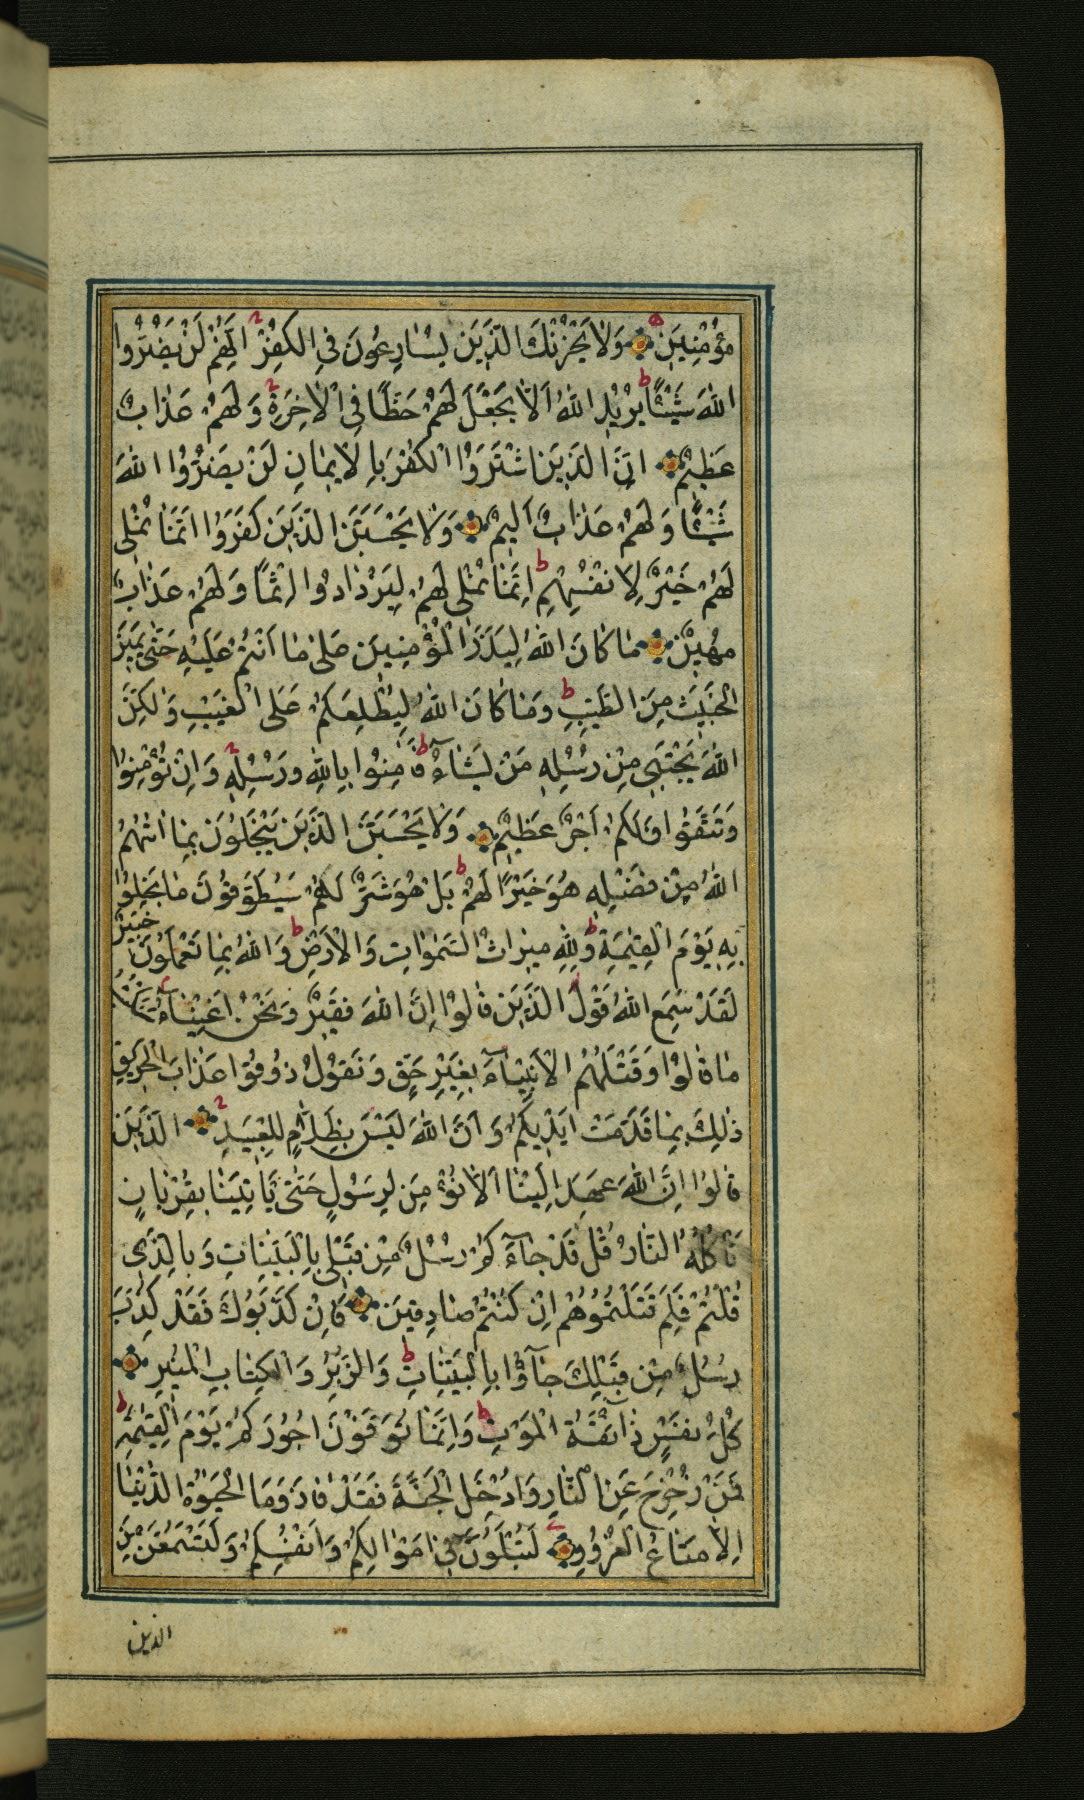 مُؤْمِنِينَ وَلَا يَحْزُنْكَ الَّذِينَ يُسَارِعُونَ فِي الْكُفْرِ اِنَّهُمْ لَنْ يَضُرُّوا
اللهَ شَيْئًا يُرِيدُ اللهُ اَلَّا يَجْعَلَ لَهُمْ حَظًّا فِي الْاٰخِرَةِ وَلَهُمْ عَذَابٌ
عَظِيمٌ اِنَّ الَّذِينَ اشْتَرَوُا الْكُفْرَ بِالْاِيمَانِ لَنْ يَضُرُّوا اللهَ
شَيْئًا وَلَهُمْ عَذَابٌ اَلِيمٌ وَلَا يَحْسَبَنَّ الَّذِينَ كَفَرُوا اَنَّمَا نُمْلِي
لَهُمْ خَيْرٌ لِاَنْفُسِهِمْ اِنَّمَا نُمْلِي لَهُمْ لِيَزْدَادُوا اِثْمًا وَلَهُمْ عَذَابٌ
مُهِينٌ مَا كَانَ اللهُ لِيَذَرَ الْمُؤْمِنِينَ عَلٰى مَا اَنْتُمْ عَلَيْهِ حَتّٰى يَمِيزَ
الْخَبِيثَ مِنَ الطَّيِّبِ وَمَا كَانَ اللهُ لِيُطْلِعَكُمْ عَلَى الْغَيْبِ وَلٰكِنَّ
اللهَ يَجْتَبِي مِنْ رُسُلِهِ مَنْ يَشَاءُ فَاٰمِنُوا بِاللهِ وَرُسُلِهِ وَاِنْ تُؤْمِنُوا
وَتَتَّقُوا فَلَكُمْ اَجْرٌ عَظِيمٌ وَلَا يَحْسَبَنَّ الَّذِينَ يَبْخَلُونَ بِمَا اٰتٰهُمُ
اللهُ مِنْ فَضْلِهِ هُوَ خَيْرًا لَهُمْ بَلْ هُوَ شَرٌّ لَهُمْ سَيُطَوَّقُونَ مَا بَخِلُوا
بِهِ يَوْمَ الْقِيٰمَةِ وَلِلّٰهِ مِيرَاثُ السَّمٰوَاتِ وَالْاَرْضِ وَاللهُ بِمَا تَعْمَلُونَ خَبِيرٌ
لَقَدْ سَمِعَ اللهُ قَوْلَ الَّذِينَ قَالُوا اِنَّ اللهَ فَقِيرٌ وَنَحْنُ اَغْنِيَاءُ سَنَكْتُبُ
مَا قَالُوا وَقَتْلَهُمُ الْاَنْبِيَاءَ بِغَيْرِ حَقٍّ وَنَقُولُ ذُوقُوا عَذَابَ الْحَرِيقِ
ذٰلِكَ بِمَا قَدَّمَتْ اَيْدِيكُمْ وَاَنَّ اللهَ لَيْسَ بِظَلَّامٍ لِلْعَبِيدِ الَّذِينَ
قَالُوا اِنَّ اللهَ عَهِدَ اِلَيْنَا اَلَّا نُؤْمِنَ لِرَسُولٍ حَتّٰى يَأْتِيَنَا بِقُرْبَانٍ
تَأْكُلُهُ النَّارُ قُلْ قَدْ جَاءَكُمْ رُسُلٌ مِنْ قَبْلِي بِالْبَيِّنَاتِ وَبِالَّذِي
قُلْتُمْ فَلِمَ قَتَلْتُمُوهُمْ اِنْ كُنْتُمْ صَادِقِينَ فَاِنْ كَذَّبُوكَ فَقَدْ كُذِّبَ
رُسُلٌ مِنْ قَبْلِكَ جَاؤُا بِالْبَيِّنَاتِ وَالزُّبُرِ وَالْكِتَابِ الْمُنِيرِ
كُلُّ نَفْسٍ ذَائِقَةُ الْمَوْتِ وَاِنَّمَا تُوَفَّوْنَ اُجُورَكُمْ يَوْمَ الْقِيٰمَةِ
فَمَنْ زُحْزِحَ عَنِ النَّارِ وَاُدْخِلَ الْجَنَّةَ فَقَدْ فَازَ وَمَا الْحَيٰوةُ الدُّنْيَا
اِلَّا مَتَاعُ الْغُرُورِ لَتُبْلَوُنَّ فِي اَمْوَالِكُمْ وَاَنْفُسِكُمْ وَلَتَسْمَعُنَّ مِنَ
الذين